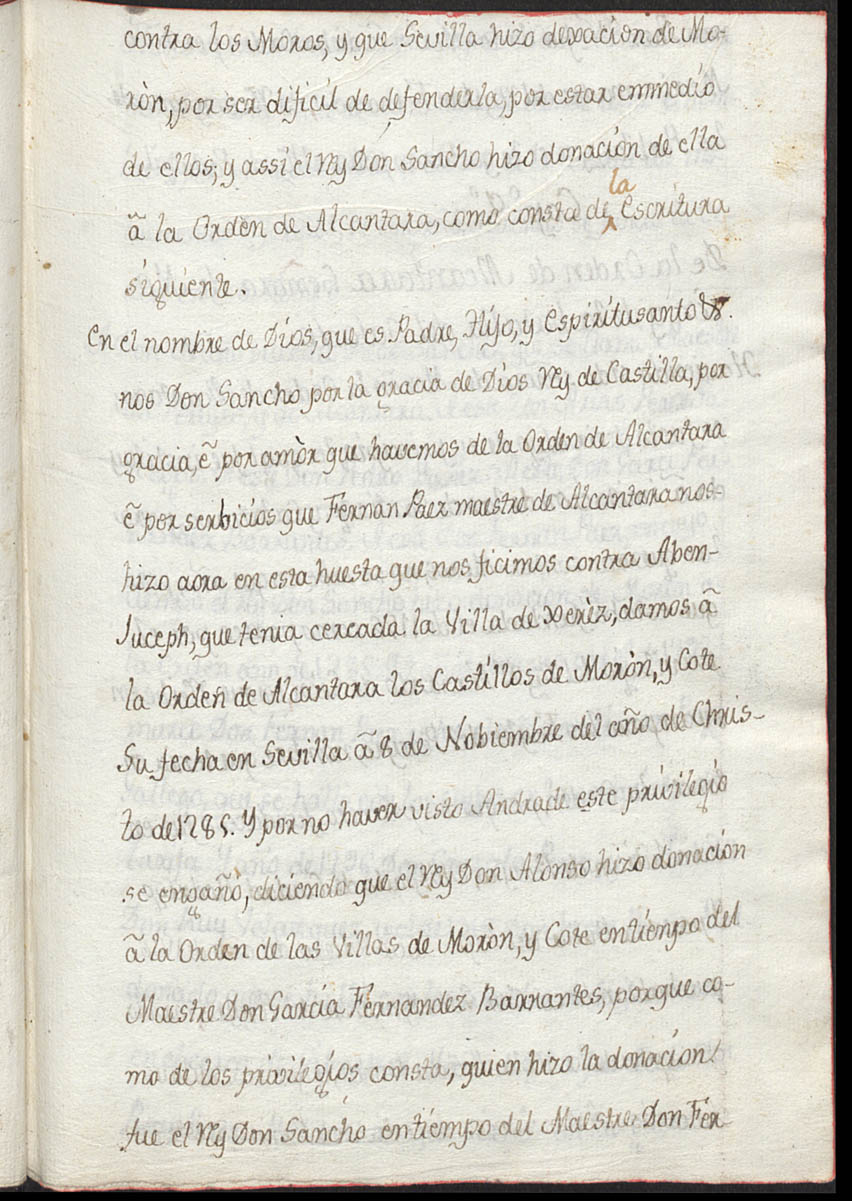 contra los Moros, y que Sevilla hizo dexacion de Mo-
ròn, por ser dificil de defenderla, por estar enmedio
de ellos; y assi el Rey Don Sancho hizo donación de ella
â la Orden de Alcantara, como consta de la Escritura
siguiente.
En el nombre de Dios, que es Padre, Hijo, y Espiritusanto &.
nos Don Sancho por la gracia de Dios Rey de Castilla, por
gracia, ê por amòr que havemos de la Orden de Alcantara
ê por serbicios que Fernan Paez maestre de Alcantara nos
hizo aora en esta huesta que nos ficimos contra Aben-
Juceph, que tenia cercada la Villa de Xerez, damos â
la Orden de Alcantara los Castillos de Moròn, y Cote
Su fecha en Sevilla â 8 de Nobiembre del año de Chris-
to de 1285. Y por no haver visto Andrade este privilegio
se engañò, diciendo que el Rey Don Alonso hizo donación
â la Orden de las Villas de Moròn, y Cote en tiempo del
Maestre Don Garcia Fernandez Barrantes, porque co-
mo de los privilegios consta, quien hizo la donacion
fue el Rey Don Sancho en tiempo del Maestre Don Fer